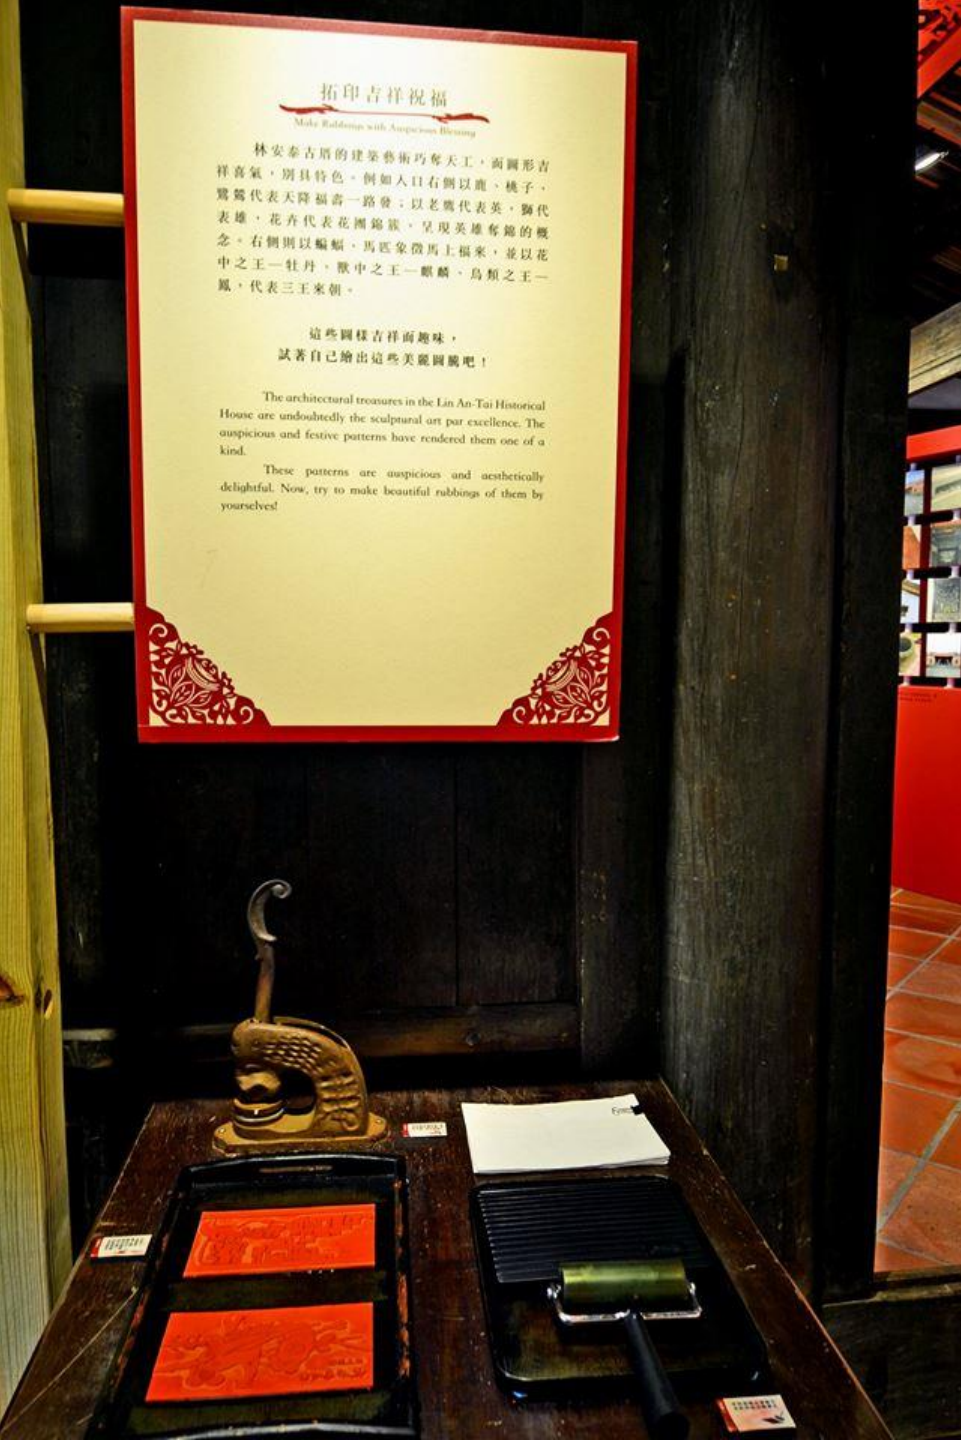 拓印吉祥祝福
Make Rubbings with Auspicious Blessing
林安泰古厝的建築藝術巧奪天工，而圖形吉
祥喜氣，別具特色。例如入口右側以鹿、桃子、
鷺鷥代表天降福壽一路發；以老鷹代表英，獅代
表雄，花卉代表花團錦簇，呈現英雄奪錦的概
念。右側則以蝙蝠、馬匹象徵馬上福來，並以花
中之王—牡丹、獸中之王—麒麟、鳥類之王—
鳳，代表三王來朝。
這些圖樣吉祥而趣味，
試著自己繪出這些美麗圖騰吧！
The architectural treasures in the Lin An-Tai Historical
House are undoubtedly the sculptural art par excellence. The
auspicious and festive patterns have rendered them one of a
kind.
These patterns are auspicious and aesthetically
delightful. Now, try to make beautiful rubbings of them by
yourselves!